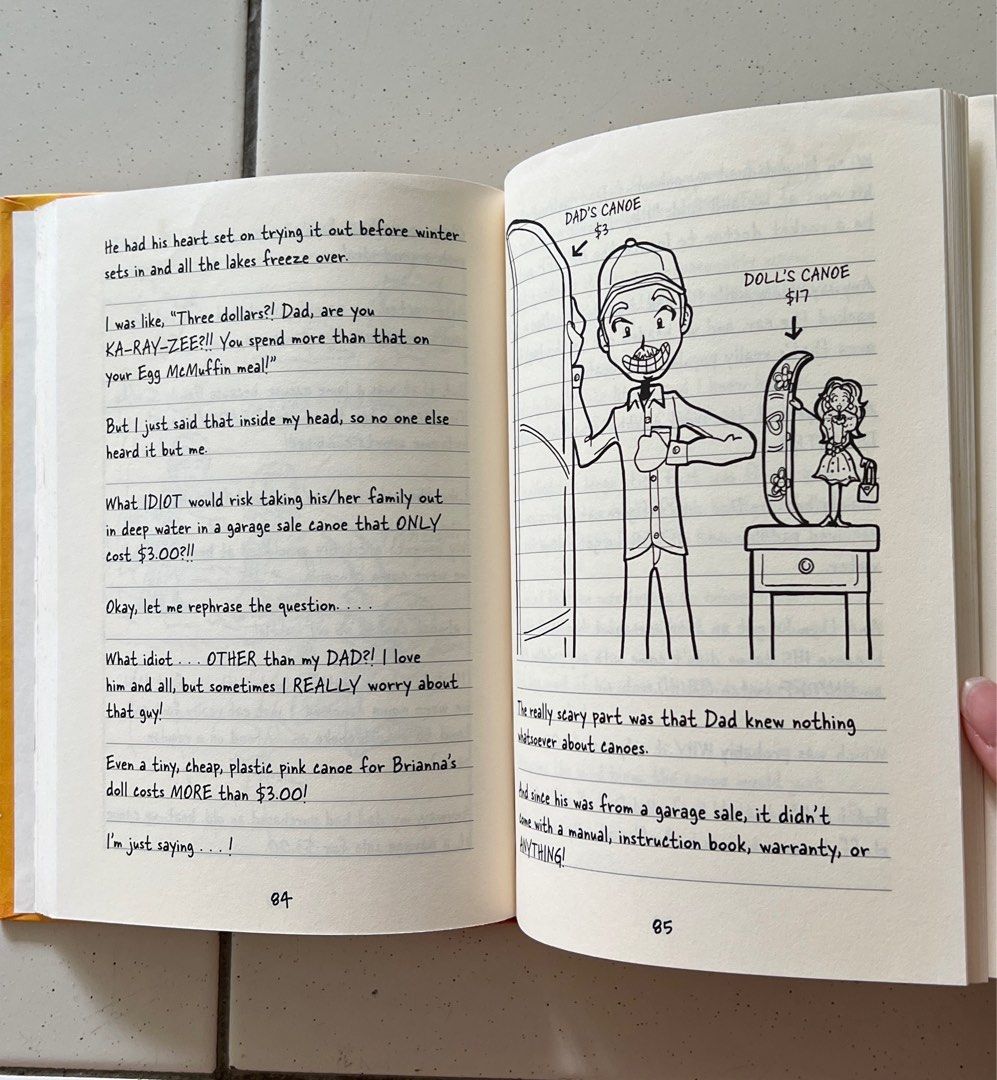 He had his heart set on trying it out before winter
sets in and all the lakes freeze over.
I was like, “Three dollars?! Dad, are you
KA-RAY-ZEE?!! You spend more than that on
your Egg McMuffin meal!”
But I just said that inside my head, so no one else
heard it but me.
What IDIOT would risk taking his/her family out
in deep water in a garage sale canoe that ONLY
cost $3.00?!!
Okay, let me rephrase the question. . . .
What idiot . . . OTHER than my DAD?! I love
him and all, but sometimes I REALLY worry about
that guy!
Even a tiny, cheap, plastic pink canoe for Brianna’s
doll costs MORE than $3.00!
I’m just saying . . . !
84
DAD’S CANOE
$3
DOLL’S CANOE
$17
The really scary part was that Dad knew nothing
whatsoever about canoes.
And since his was from a garage sale, it didn’t
come with a manual, instruction book, warranty, or
ANYTHING!
85